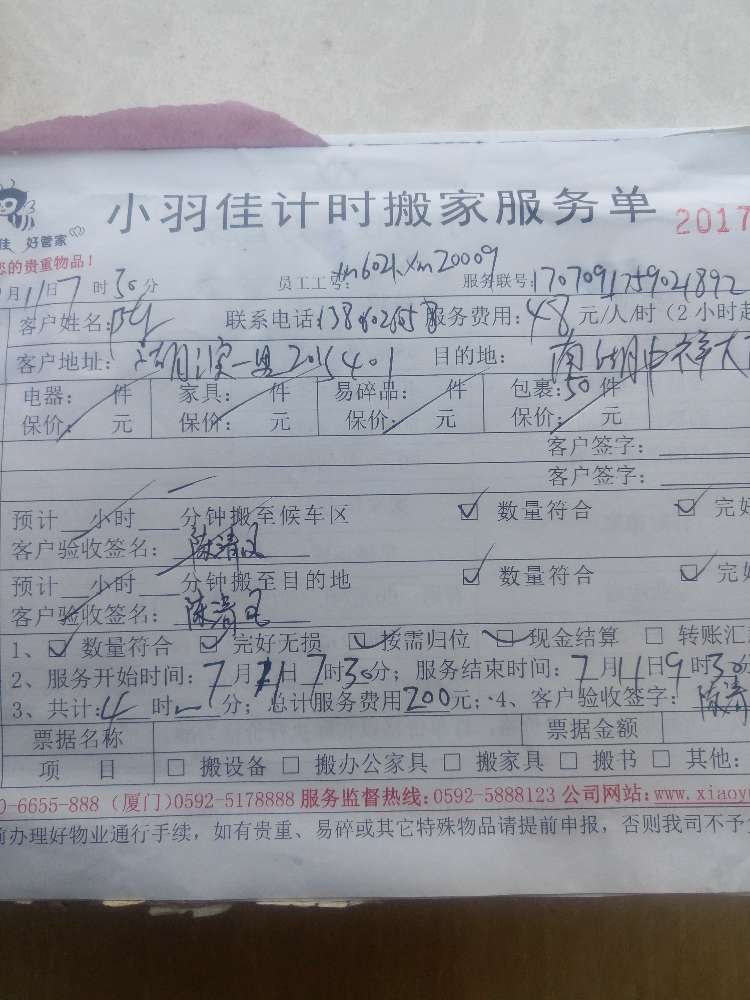 小羽佳计时搬家服务单 2017
佳 好管家
您的贵重物品！
月11日7时30分 员工工号：xm6021.xm20009 服务联号：1707091759021892
客户姓名： 联系电话： 服务费用：48元/人/时（2小时起
客户地址： 2015401 目的地：
电器： 件 家具： 件 易碎品： 件 包裹：50件
保价： 元 保价： 元 保价： 元 保价： 元
客户签字：
客户签字：
预计 小时 分钟搬至候车区 ☑ 数量符合 ☑ 完好
客户验收签名：陈清
预计 小时 分钟搬至目的地 ☑ 数量符合 ☑ 完好
客户验收签名：陈清
1、☑ 数量符合 ☑ 完好无损 ☑ 按需归位 ☑ 现金结算 □ 转账汇
2、服务开始时间：7月11日7时30分；服务结束时间：7月11日9时30分
3、共计：4时 分；总计服务费用200元；4、客户验收签字：陈清
票据名称 票据金额
项 目 □ 搬设备 □ 搬办公家具 □ 搬家具 □ 搬书 □ 其他：
0-6655-888（厦门）0592-5178888 服务监督热线：0592-5888123 公司网站：www.xiaoy
前办理好物业通行手续，如有贵重、易碎或其它特殊物品请提前申报，否则我司不予